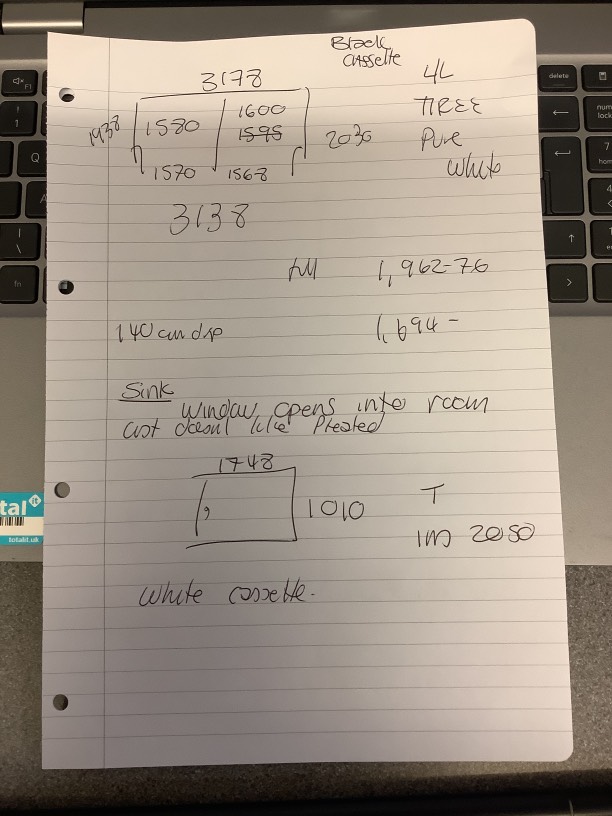 Black
cassette
3178
4L
1600
TIREE
1938
1580
1595
2030
Pure
White
1570
1568
3138
full 1,962-76
140cm drp 1,694-
Sink
Window opens into room
cust doesnt like Pleated
1748
1010
T
1m 2050
White cassette.
tal it
totalit.uk
delete
num
lock
F1
!
1
Q
A
|
\
fn
7
home
4
1
end
←
↑
>